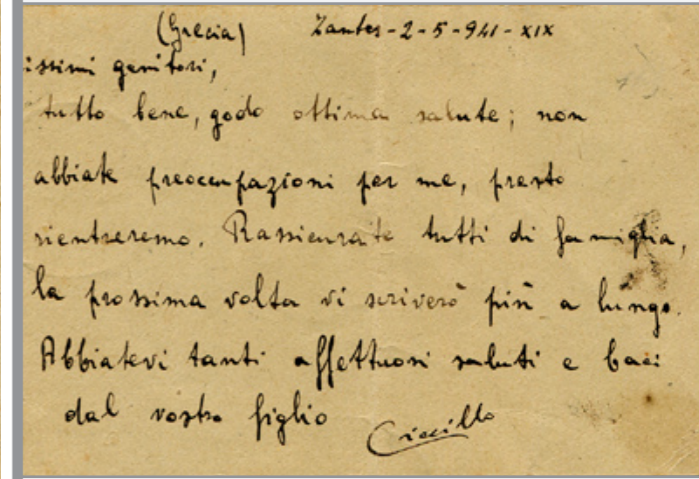 (Grecia) Zante, -2-5-941-XIX
issimi genitori,
tutto bene, godo ottima salute; non
abbiate preoccupazioni per me, presto
rientreremo. Rassicurate tutti di famiglia,
la prossima volta vi scriverò più a lungo.
Abbiatevi tanti affettuosi saluti e baci
dal vostro figlio Ciccillo